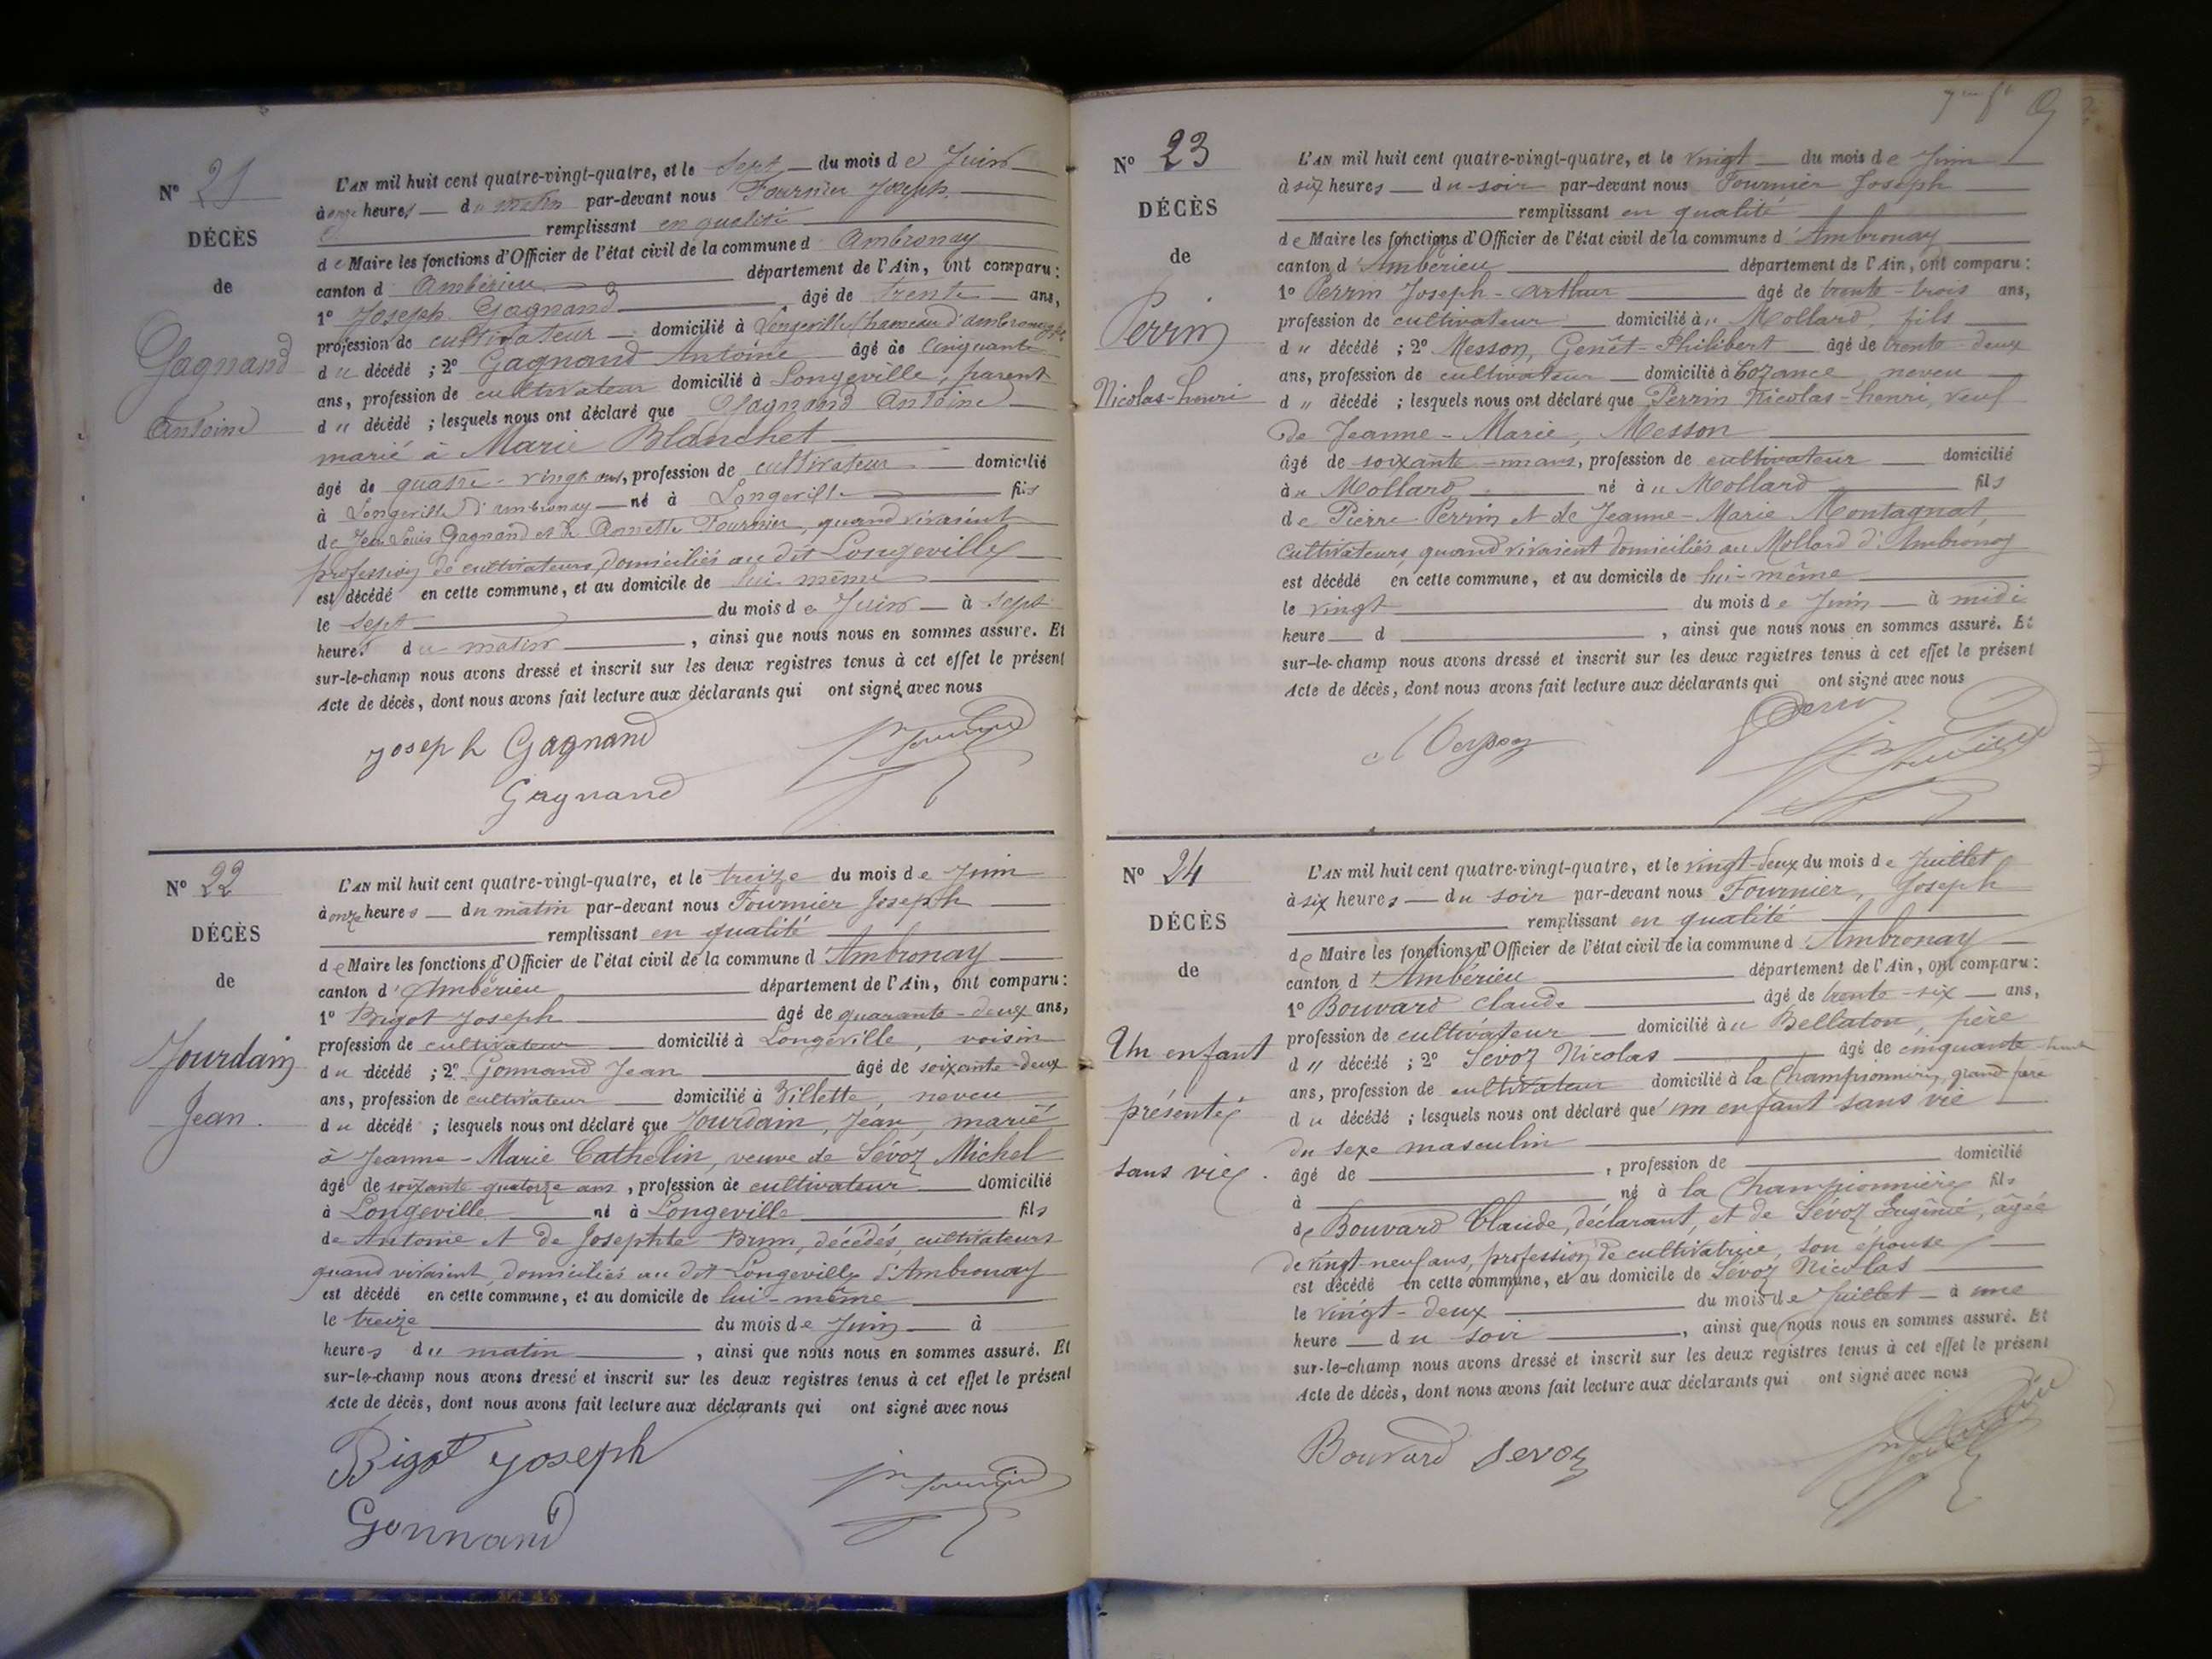 N° 21
DÉCÈS
de
Gagnand
Antoine
L'AN mil huit cent quatre-vingt-quatre, et le sept du mois de Juin
à onze heures du matin par-devant nous Fournier Joseph
remplissant en qualité
de Maire les fonctions d'Officier de l'état civil de la commune d Ambronay
canton d Ambérieu département de l'Ain, ont comparu :
1° Joseph Gagnand âgé de trente ans,
profession de cultivateur domicilié à Longeville hameau d'ambronay
du décédé ; 2° Gagnand Antoine âgé de Cinquante
ans, profession de cultivateur domicilié à Longeville, parent
du décédé ; lesquels nous ont déclaré que Gagnand Antoine
marié à Marie Blanchet
âgé de quatre-vingt ans, profession de cultivateur domicilié
à Longeville d'ambronay né à Longeville fils
de Jean Louis Gagnand et de Annette Fournier, quand vivaient
profession de cultivateurs domiciliés au dit Longeville
est décédé en cette commune, et au domicile de lui même
le sept du mois de Juin à sept
heures du matin, ainsi que nous nous en sommes assuré. Et
sur-le-champ nous avons dressé et inscrit sur les deux registres tenus à cet effet le présent
Acte de décès, dont nous avons fait lecture aux déclarants qui ont signé avec nous
Joseph Gagnand
Gagnand
N° 22
DÉCÈS
de
Jourdain
Jean.
L'AN mil huit cent quatre-vingt-quatre, et le treize du mois de Juin
à onze heures du matin par-devant nous Fournier Joseph
remplissant en qualité
de Maire les fonctions d'Officier de l'état civil de la commune d'Ambronay
canton d'Ambérieu département de l'Ain, ont comparu :
1° Bigot Joseph âgé de quarante-deux ans,
profession de cultivateur domicilié à Longeville, voisin
du décédé ; 2° Gonnand Jean âgé de soixante-deux
ans, profession de cultivateur domicilié à Villette, neveu
du décédé ; lesquels nous ont déclaré que Jourdain, Jean, marié
à Jeanne-Marie Cathelin, veuve de Sévoz Michel
âgé de soixante quatorze ans, profession de cultivateur domicilié
à Longeville né à Longeville fils
de Antoine et de Josephte Brun, décédés, cultivateurs
quand vivaient, domiciliés au dit Longeville d'Ambronay
est décédé en cette commune, et au domicile de lui-même
le treize du mois de Juin à
heures du matin, ainsi que nous nous en sommes assuré. Et
sur-le-champ nous avons dressé et inscrit sur les deux registres tenus à cet effet le présent
Acte de décès, dont nous avons fait lecture aux déclarants qui ont signé avec nous
Bigot Joseph
Gonnand
N° 23
DÉCÈS
de
Perrin
Nicolas-henri
L'AN mil huit cent quatre-vingt-quatre, et le vingt du mois de Juin
à six heures du soir par-devant nous Fournier Joseph
remplissant en qualité
de Maire les fonctions d'Officier de l'état civil de la commune d'Ambronay
canton d'Ambérieu département de l'Ain, ont comparu :
1° Perrin Joseph-Arthur âgé de trente-trois ans,
profession de cultivateur domicilié au Mollard, fils
du décédé ; 2° Messon, Genêt-Philibert âgé de trente-deux
ans, profession de cultivateur domicilié à Cozance neveu
du décédé ; lesquels nous ont déclaré que Perrin Nicolas-henri, veuf
de Jeanne-Marie, Messon
âgé de soixante-un ans, profession de cultivateur domicilié
au Mollard né au Mollard fils
de Pierre Perrin et de Jeanne-Marie Montagnat,
cultivateurs, quand vivaient domiciliés au Mollard d'Ambronay
est décédé en cette commune, et au domicile de lui-même
le vingt du mois de Juin à midi
heure d, ainsi que nous nous en sommes assuré. Et
sur-le-champ nous avons dressé et inscrit sur les deux registres tenus à cet effet le présent
Acte de décès, dont nous avons fait lecture aux déclarants qui ont signé avec nous
N° 24
DÉCÈS
de
Un enfant
présenté
sans vie.
L'AN mil huit cent quatre-vingt-quatre, et le vingt-deux du mois de Juillet
à six heures du soir par-devant nous Fournier, Joseph
remplissant en qualité
de Maire les fonctions d'Officier de l'état civil de la commune d'Ambronay
canton d'Ambérieu département de l'Ain, ont comparu :
1° Bouvard Claude âgé de trente-six ans,
profession de cultivateur domicilié au Bellaton, père
du décédé ; 2° Sévoz Nicolas âgé de cinquante
ans, profession de cultivateur domicilié à la Championnière, grand-père
du décédé ; lesquels nous ont déclaré que un enfant sans vie
du sexe masculin
âgé de, profession de domicilié
à né à la Championnière fils
de Bouvard Claude, déclarant, et de Sévoz Eugénie, âgée
de vingt-neuf ans, profession de cultivatrice, son épouse
est décédé en cette commune, et au domicile de Sévoz Nicolas
le vingt-deux du mois de Juillet à une
heure du soir, ainsi que nous nous en sommes assuré. Et
sur-le-champ nous avons dressé et inscrit sur les deux registres tenus à cet effet le présent
Acte de décès, dont nous avons fait lecture aux déclarants qui ont signé avec nous
Bouvard Sevoz